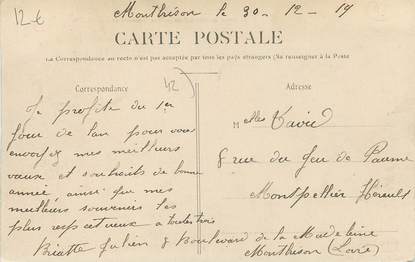 12€
Montbrison le 30 - 12 - 19
CARTE POSTALE
La Correspondance au recto n'est pas acceptée par tous les pays étrangers (Se renseigner à la Poste
Correspondance
Adresse
42
Je profite du 1er
jour de l'an pour vous
envoyer mes meilleurs
vœux et souhaits de bonne
année ainsi que mes
meilleurs souvenirs les
plus respectueux à toutes trois
Julien 8 Boulevard de la Madeleine
Montbrison (Loire)
Melles
8 rue du Jeu de Paume
Montpellier Hérault